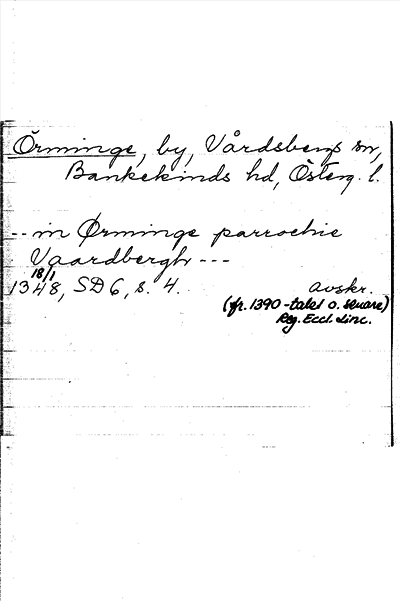 Örminge, by, Vårdsbergs sn,
Bankekinds hd, Österg. l.
-- in Ørminge parrochie
Vaardbergh ---
18/1
1348, SD 6, s. 4. avskr.
(fr. 1390-talet o. senare)
Reg. Eccl. Linc.